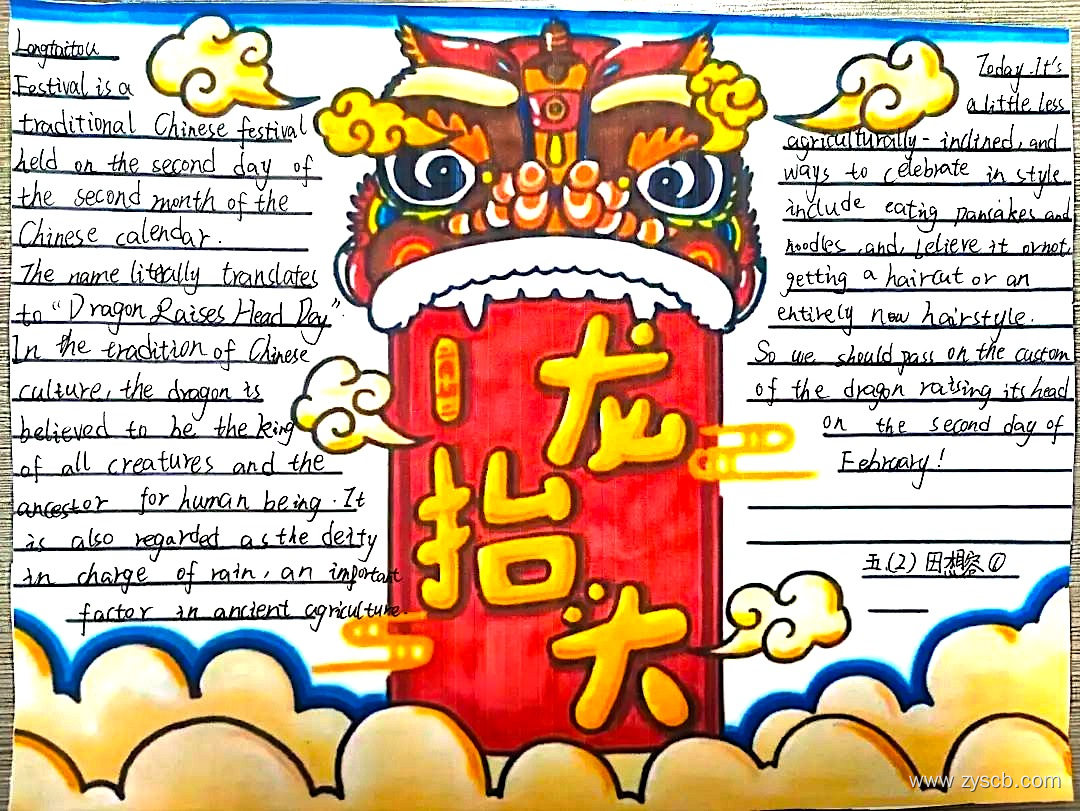 Longtaitou
Festival is a
traditional Chinese festival
held on the second day of
the second month of the
Chinese calendar.
The name literally translates
to "Dragon Raises Head Day".
In the tradition of Chinese
culture, the dragon is
believed to be the king
of all creatures and the
ancestor for human being. It
is also regarded as the deity
in charge of rain, an important
factor in ancient agriculture.
龙
抬
头
Today. It's
a little less
agriculturally-inclined, and
ways to celebrate in style
include eating pancakes and
noodles, and, believe it or not,
getting a haircut or an
entirely new hairstyle.
So we should pass on the custom
of the dragon raising its head
on the second day of
February!
五.(2) 田想容①
www.zyscb.com